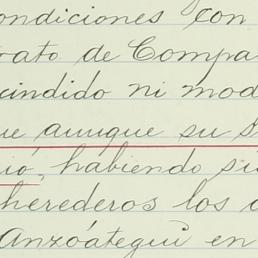 ondiciones con
rato de Compa
cindido ni mod
ue aunque su s
uió, habiendo si
herederos los
Anzóategui en